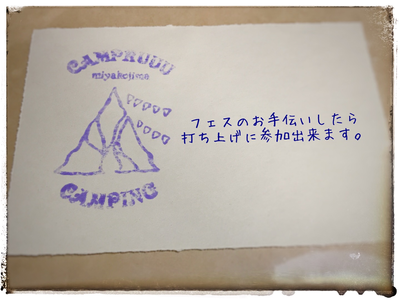 CAMPRUUU
miyakojima
フェスのお手伝いしたら
打ち上げに参加出来ます。
CAMPING